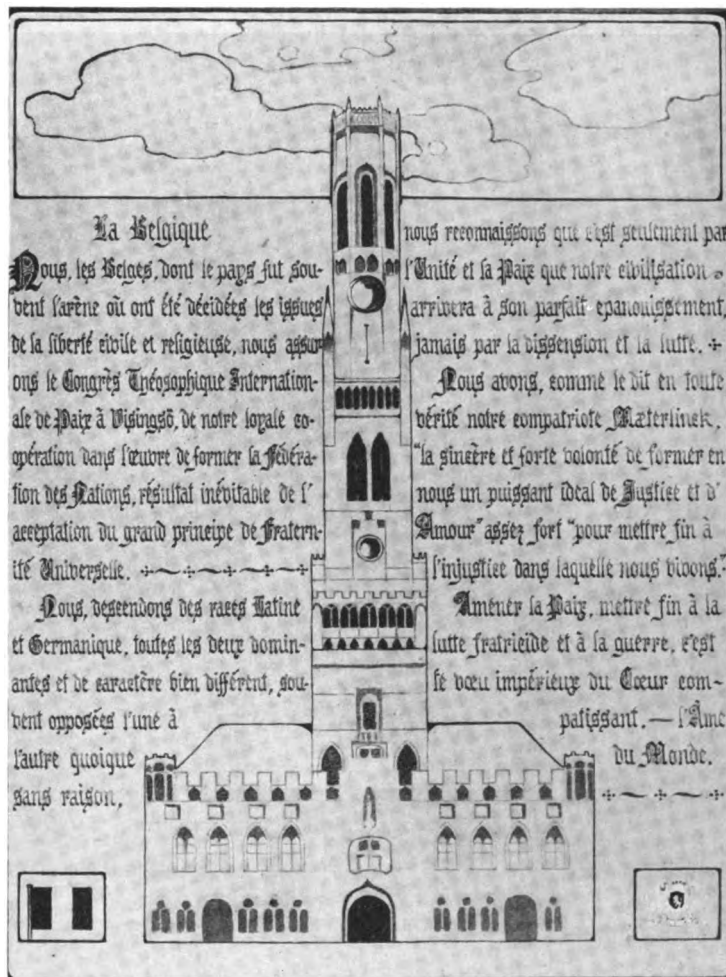 La Belgique
Nous, les Belges, dont le pays fut sou-
vent l'arène où ont été décidées les issues
de la liberté civile et religieuse, nous assur
ons le Congrès Théosophique Internation-
ale de Paix à Visingsö, de notre loyale co-
opération dans l'œuvre de former la Fédéra-
tion des Nations, résultat inévitable de l'
acceptation du grand principe de Fratern-
ité Universelle.
Nous, descendons des races Latine
et Germanique, toutes les deux domin-
antes et de caractère bien différent, sou-
vent opposées l'une à
l'autre quoique
sans raison,
nous reconnaissons que c'est seulement par
l'Unité et la Paix que notre civilisation
arrivera à son parfait epanouissement,
jamais par la dissension et la lutte.
Nous avons, comme le dit en toute
vérité notre compatriote Mæterlinck,
"la sincère et forte volonté de former en
nous un puissant idéal de Justice et d'
Amour" assez fort "pour mettre fin à
l'injustice dans laquelle nous vivons."
Améner la Paix, mettre fin à la
lutte fratricide et à la guerre, c'est
le vœu impérieux du Cœur com-
patissant. — l'Ame
du Monde.